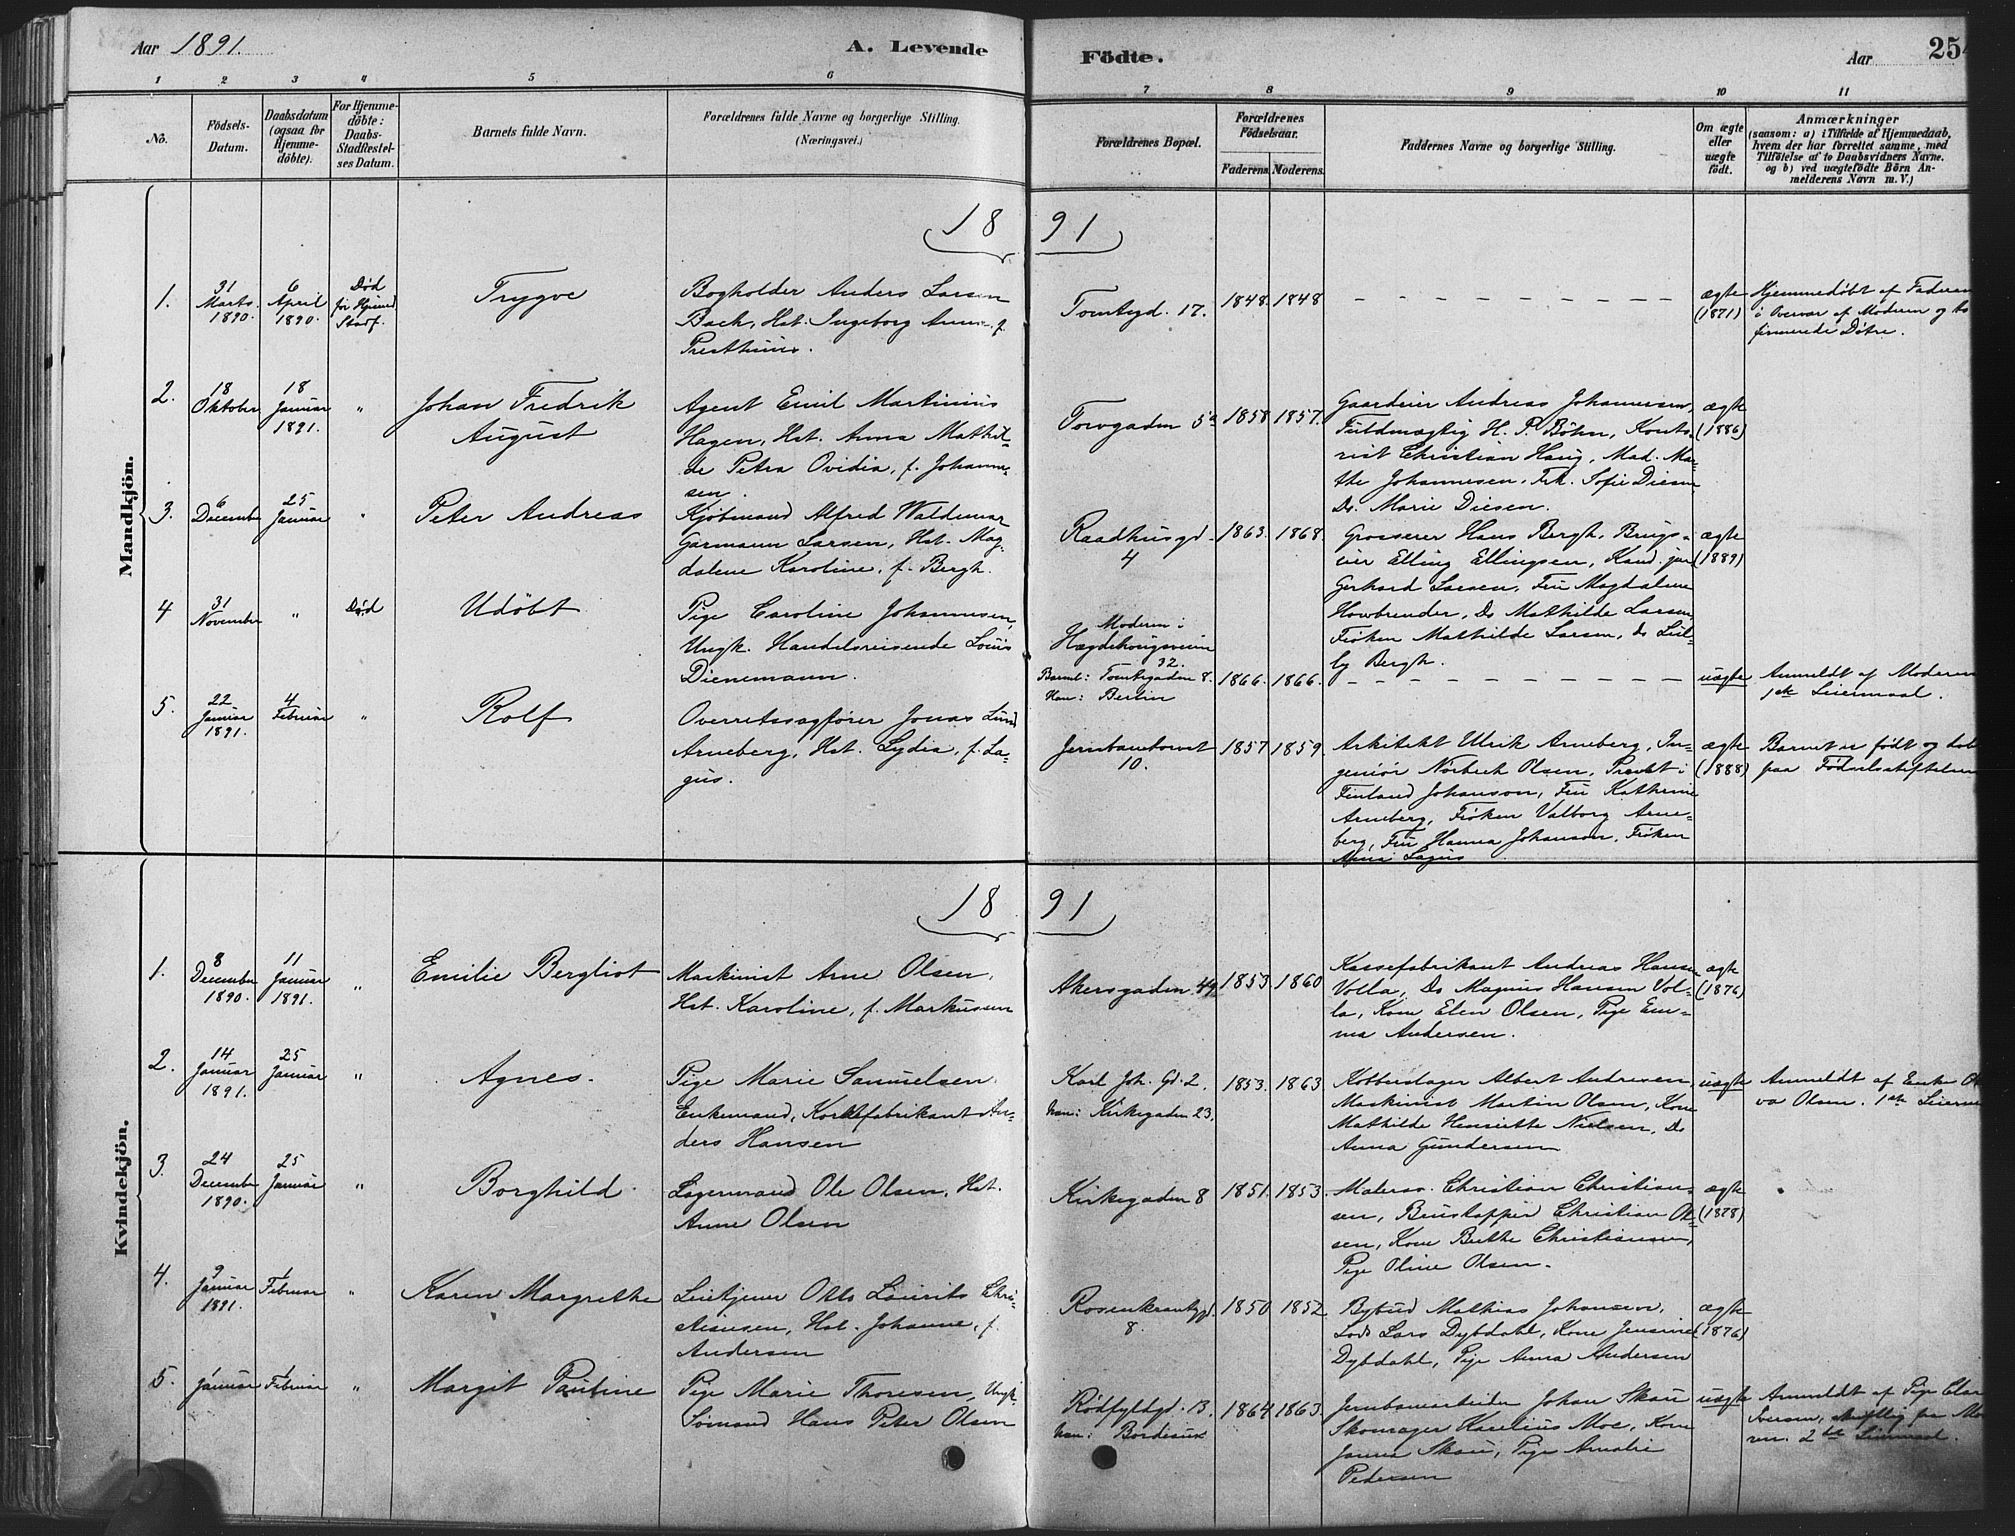 Aar 1891.
A. Levende
Födte.
Aar
254
1 2 3 4 5 6
7 8 9 10 11
No.
Födsels-
Datum.
Daabsdatum
(ogsaa for
Hjemme-
döbte).
For Hjemme-
döbte:
Daabs-
Stadfæstel-
ses Datum.
Barnets fulde Navn.
Forældrenes fulde Navne og borgerlige Stilling.
(Næringsvei.)
Forældrenes Bopæl.
Forældrenes
Födselsaar.
Faderens. Moderens.
Faddernes Navne og borgerlige Stilling.
Om ægte
eller
uægte
födt.
Anmærkninger
(saasom: a) i Tilfælde af Hjemmedaab,
hvem der har forrettet samme, med
Tilföielse af to Daabsvidners Navne.
og b) ved uægtefödte Börn An-
melderens Navn m. V.)
Mandkjön.
18 91
1.
31
Marts
1890.
6
April
1890.
Død
før Hjemed
Stadf.
Trygve
Bogholder Anders Larsen
Bach, Hst. Ingeborg Anna, f.
Presthus.
Tomtegd. 17.
1848. 1848
ægte
(1871)
Hjemmedøbt af Faderen
i Overvær af Moderen og to
firmerede Døtre.
2.
18
Oktober
18
Januar
1891.
"
Johan Fredrik
August
Agent Emil Martinius
Hagen, Hst. Anna Mathil-
de Petra Ovidia, f. Johanne-
sen.
Torvgaden 5a
1858 1857.
Gaardeier Andreas Johannesen,
Fuldmægtig H. P. Bøhn, Konto-
rist Christian Haug, Mad. Ma-
the Johannesen, Frk. Sofie Diesen
Do. Marie Diesen.
ægte
(1886)
3.
6
December
25
Januar
"
Peter Andreas
Kjøbmand Alfred Waldemar
Garmann Larsen, Hst. Mag-
dalene Karoline, f. Bergh.
Raadhusgd.
4
1863. 1868.
Grosserer Hans Bergh, Brugs-
eier Elling Ellingsen, Kand. jur
Gerhard Larsen, Fru Magdalene
Howbrender, Do Mathilde Larsen,
Frøken Mathilde Larsen, do Lul-
ly Bergh.
ægte
(1889)
4
31
November
"
Død
Udöbt
Pige Caroline Johannesen,
Ungk. Handelsreisende Louis
Dienemann.
Moderen i
Hægdehougsveien
32.
Barnet: Tomtegaden 8.
Han: Berlin
1866. 1866.
uægte
Anmeldt af Moderen
1ste Leiermaal.
5.
22
Januar
1891.
4
Februar
"
Rolf
Overretssagfører Jonas Lund
Arneberg, Hst. Lydia, f. La-
gus.
Jernbanetorvet
10.
1857 1859.
Arkitekt Ulrik Arneberg, In-
geniør Norbeck Olsen, Provst i
Finland Johanson, Fru Kathrine
Arneberg, Frøken Valborg Arne-
berg, Fru Hanna Johanson, Frøken
Lagus
ægte
(1888)
Barnet er født og døbt
paa Fødselsstiftelsen
Kvindekjön.
18 91
1.
8
December
1890.
11
Januar
1891.
"
Emilie Bergliot
Maskinist Arne Olsen,
Hst. Karoline, f. Markussen
Akersgaden 49
1853. 1860
Kassefabrikant Andreas Hansen
Volla, Do Magnus Hansen Vol-
la, Kone Elen Olsen, Pige Em-
ma Andersen.
ægte
(1876)
2.
14
Januar
1891.
25
Januar
"
Agnes.
Pige Marie Samuelsen
Enkemand, Korkefabrikant An-
ders Hansen
Karl Joh. Gd. 2.
Han: Kirkegaden 23.
1853. 1863
Kobberslager Albert Andresen,
Maskinist Martin Olsen, Kone
Mathilde Henriette Nielsen, Do
Anna Gundersen
uægte
Anmeldt af Enke
va Olsen. 1ste
3.
24
December
1890.
25
Januar
"
Borghild.
Lagermand Ole Olsen, Hst.
Anne Olsen
Kirkegaden 8
1851. 1853.
Malersv. Christian Christian-
sen, Buntapper Christian Ol-
sen, Kone Berthe Christiansen,
Pige Oline Olsen.
ægte
(1878)
4.
9
Januar
1891.
1
Februar
"
Karen Margrethe
Leietjener Otto Laurits Chri-
stensen, Hst. Johanne, f.
Andersen
Rosenkrantzgd.
8.
1850. 1852
Bybud Mathias Johansen,
Lods Lars Dybdahl, Kone Jensine
Dybdahl, Pige Anna Andersen
ægte
(1876)
5.
Januar
1
Februar
"
Margit Pauline
Pige Marie Thoresen, Ungk.
Sømand Hans Peter Olsen
Rødfyldgd. 13.
Han: Bordeaux
1864 1863.
Jernbanearbeider Johan Skau
Skomager Karelius Moe, Kone
Janna Skau, Pige Amalie
Pedersen
uægte
Anmeldt af Pige
Iversen, skriftlig fra
2det Leiermaal.